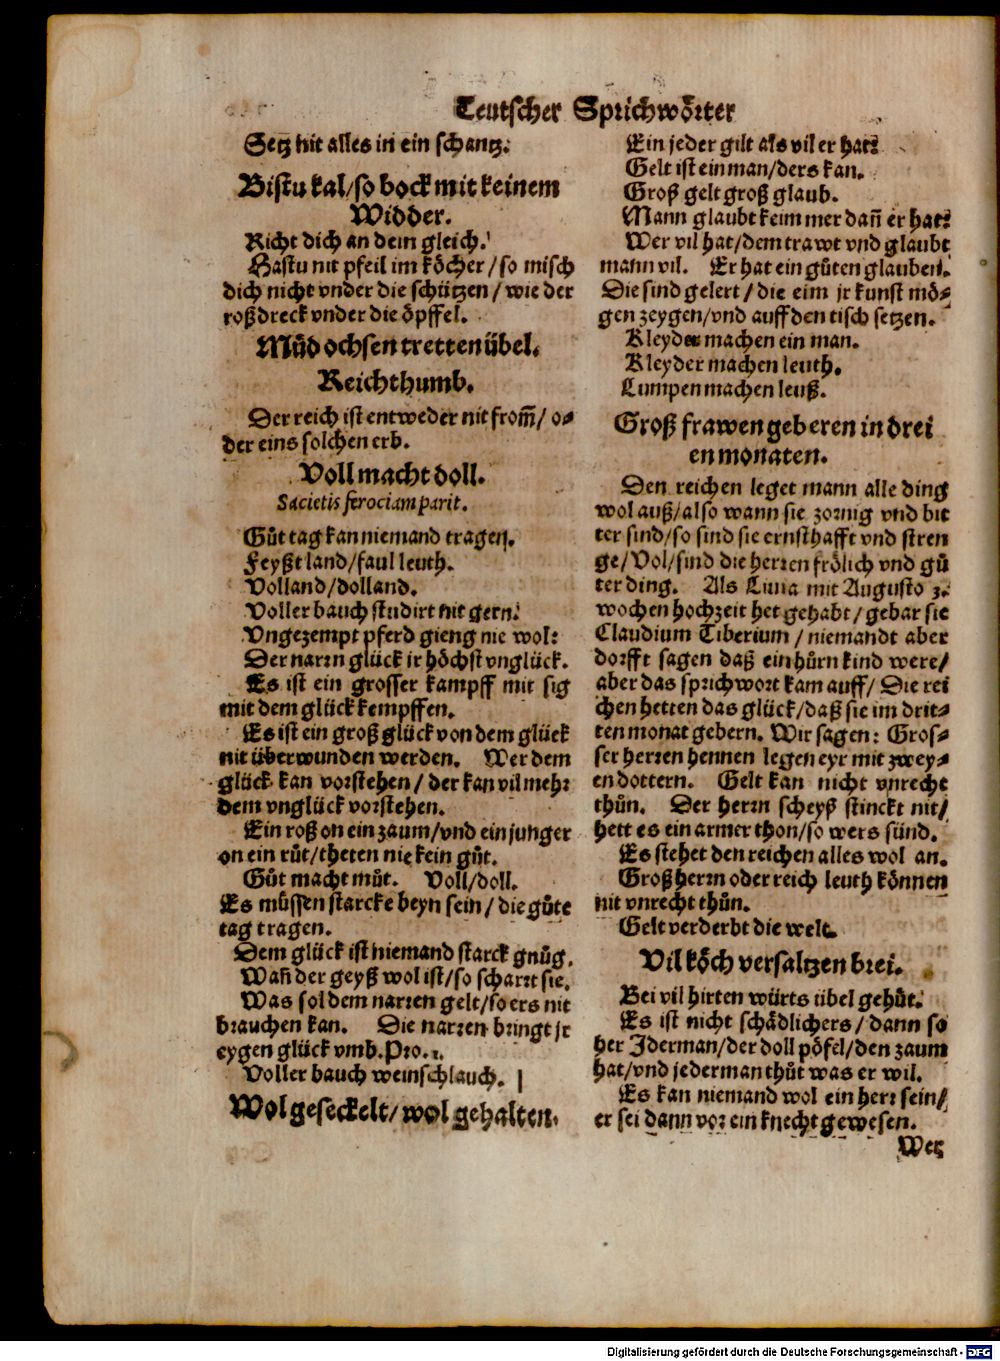 Teutscher Sprichwörter
Setz nit alles in ein schantz.
Bistu kal/so bock mit keinem
Widder.
Richt dich an dein gleich.
Hastu nit pfeil im köcher/so misch
dich nicht vnder die schützen/wie der
roßdreck vnder die öpffel.
Müd ochsen tretten übel.
Reichthumb.
Der reich ist entweder nit from̃/o⸗
der eins solchen erb.
Voll macht doll.
Sacietis ferociam parit.
Gůt tag kan niemand tragen.
Feyßt land/faul leuth.
Volland/dolland.
Voller bauch studirt nit gern.
Vngezempt pferd gieng nie wol:
Der narrn glück ir höchst vnglück.
Es ist ein grosser kampff mit sig
mit dem glück kempffen.
Es ist ein groß glück von dem glück
nit überwunden werden. Wer dem
glück kan vorstehen/der kan vil mehr
dem vnglück vorstehen.
Ein roß on ein zaum/vnd ein junger
on ein růt/theten nie kein gůt.
Gůt macht můt. Voll/doll.
Es müssen starcke beyn sein/die gůte
tag tragen.
Dem glück ist niemand starck gnůg.
Wañ der geyß wol ist/so scharrt sie.
Was sol dem narren gelt/so ers nit
brauchen kan. Die narren bringt jr
eygen glück vmb. Pro. 1.
Voller bauch weinschlauch.
Wol geseckelt/wol gehalten.
Ein jeder gilt als vil er hat:
Gelt ist ein man/ders kan.
Groß gelt groß glaub.
Mann glaubt keim mer dañ er hat:
Wer vil hat/dem trawt vnd glaubt
mann vil. Er hat ein gůten glauben.
Die sind gelert/die eim jr kunst mö⸗
gen zeygen/vnd auff den tisch setzen.
Kleyder machen ein man.
Kleyder machen leuth.
Lumpen machen leuß.
Groß frawen geberen in drei
en monaten.
Den reichen leget mann alle ding
wol auß/also wann sie zornig vnd bit
ter sind/so sind sie ernsthafft vnd stren
ge/Vol/sind die herren frölich vnd gů
ter ding. Als Liuia mit Augusto 3.
wochen hochzeit het gehabt/gebar sie
Claudium Tiberium/niemandt aber
dorfft sagen daß ein hůrn kind were/
aber das sprichwort kam auff/Die rei
chen hetten das glück/daß sie im drit⸗
ten monat gebern. Wir sagen: Gros⸗
ser herren hennen legen eyr mit zwey⸗
en dottern. Gelt kan nicht vnrecht
thůn. Der herrn scheyß stinckt nit/
hett es ein armer thon/so wers sünd.
Es stehet den reichen alles wol an.
Groß herrn oder reich leuth können
nit vnrecht thůn.
Gelt verderbt die welt.
Vil köch versaltzen brei.
Bei vil hirten würts übel gehůt.
Es ist nicht schädlichers/dann so
her Jderman/der doll pöfel/den zaum
hat/vnd jederman thůt was er wil.
Es kan niemand wol ein herr sein/
er sei dann vor ein knecht gewesen.
Wer
Digitalisierung gefördert durch die Deutsche Forschungsgemeinschaft - DFG